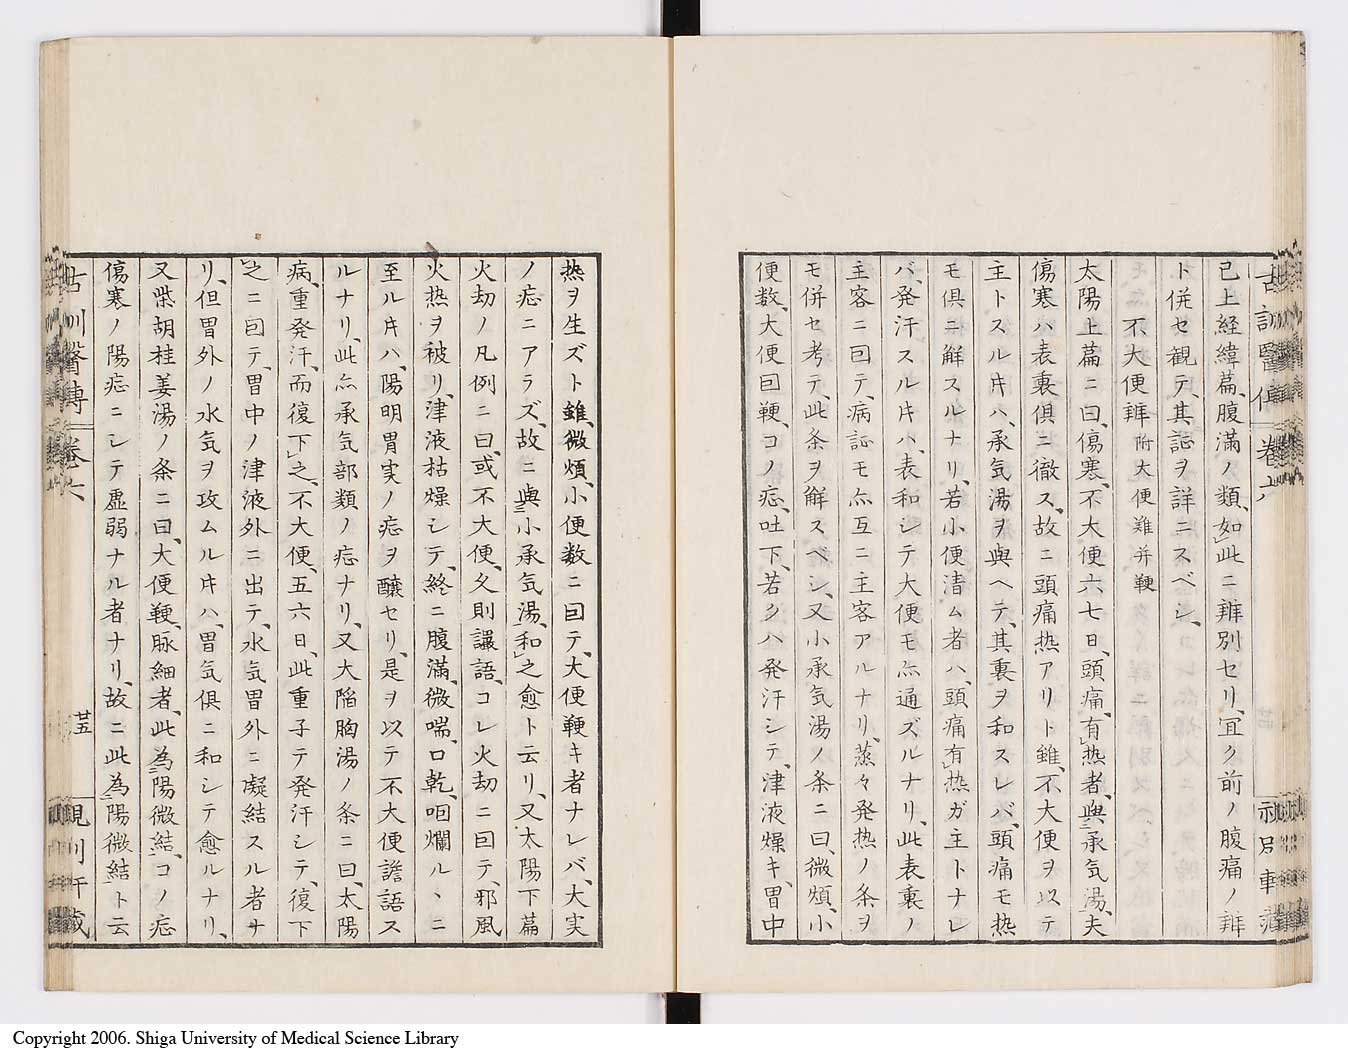 已上経緯篇、腹満ノ類、如此ニ辨別セリ、冝ク前ノ腹痛ノ辨
ト併セ観テ、其証ヲ詳ニスベシ、
不大便辨 附大便難并鞕
太陽上篇ニ曰、傷寒、不大便六七日、頭痛、有熱者、與承気湯、夫
傷寒ハ表裏倶ニ徹ス、故ニ頭痛熱アリト雖、不大便ヲ以テ
主トスルキハ、承気湯ヲ與ヘテ、其裏ヲ和スレバ、頭痛モ熱
モ倶ニ解スルナリ、若小便清ム者ハ、頭痛有熱ガ主トナレ
バ、発汗スルキハ、表和シテ大便モ亦通ズルナリ、此表裏ノ
主客ニ因テ、病証モ亦互ニ主客アルナリ、蒸々発熱ノ条ヲ
モ併セ考テ、此条ヲ解スベシ、又小承気湯ノ条ニ曰、微煩、小
便数、大便因鞕、コノ症、吐下、若クハ発汗シテ、津液燥キ、胃中
古訓醫傳 卷六
熱ヲ生ズト雖、微煩、小便数ニ因テ、大便鞕キ者ナレバ、大実
ノ症ニアラズ、故ニ與小承気湯、和之愈ト云リ、又太陽下篇
火劫ノ凡例ニ曰、或不大便、久則讝語、コレ火劫ニ因テ、邪風
火熱ヲ被リ、津液枯燥シテ、終ニ腹満、微喘、口乾、咽爛ルヽニ
至ルキハ、陽明胃実ノ症ヲ醸セリ、是ヲ以テ不大便譫語ス
ルナリ、此亦承気部類ノ症ナリ、又大陥胸湯ノ条ニ曰、太陽
病、重発汗、而復下之、不大便、五六日、此重子テ発汗シテ、復下
之ニ因テ、胃中ノ津液外ニ出テ、水気胃外ニ凝結スル者ナ
リ、但胃外ノ水気ヲ攻ムルキハ、胃気倶ニ和シテ愈ルナリ、
又柴胡桂姜湯ノ条ニ曰、大便鞕、脉細者、此為陽微結、コノ症
傷寒ノ陽症ニシテ虚弱ナル者ナリ、故ニ此為陽微結ト云
古訓醫傳 卷六
廿五
Copyright 2006. Shiga University of Medical Science Library